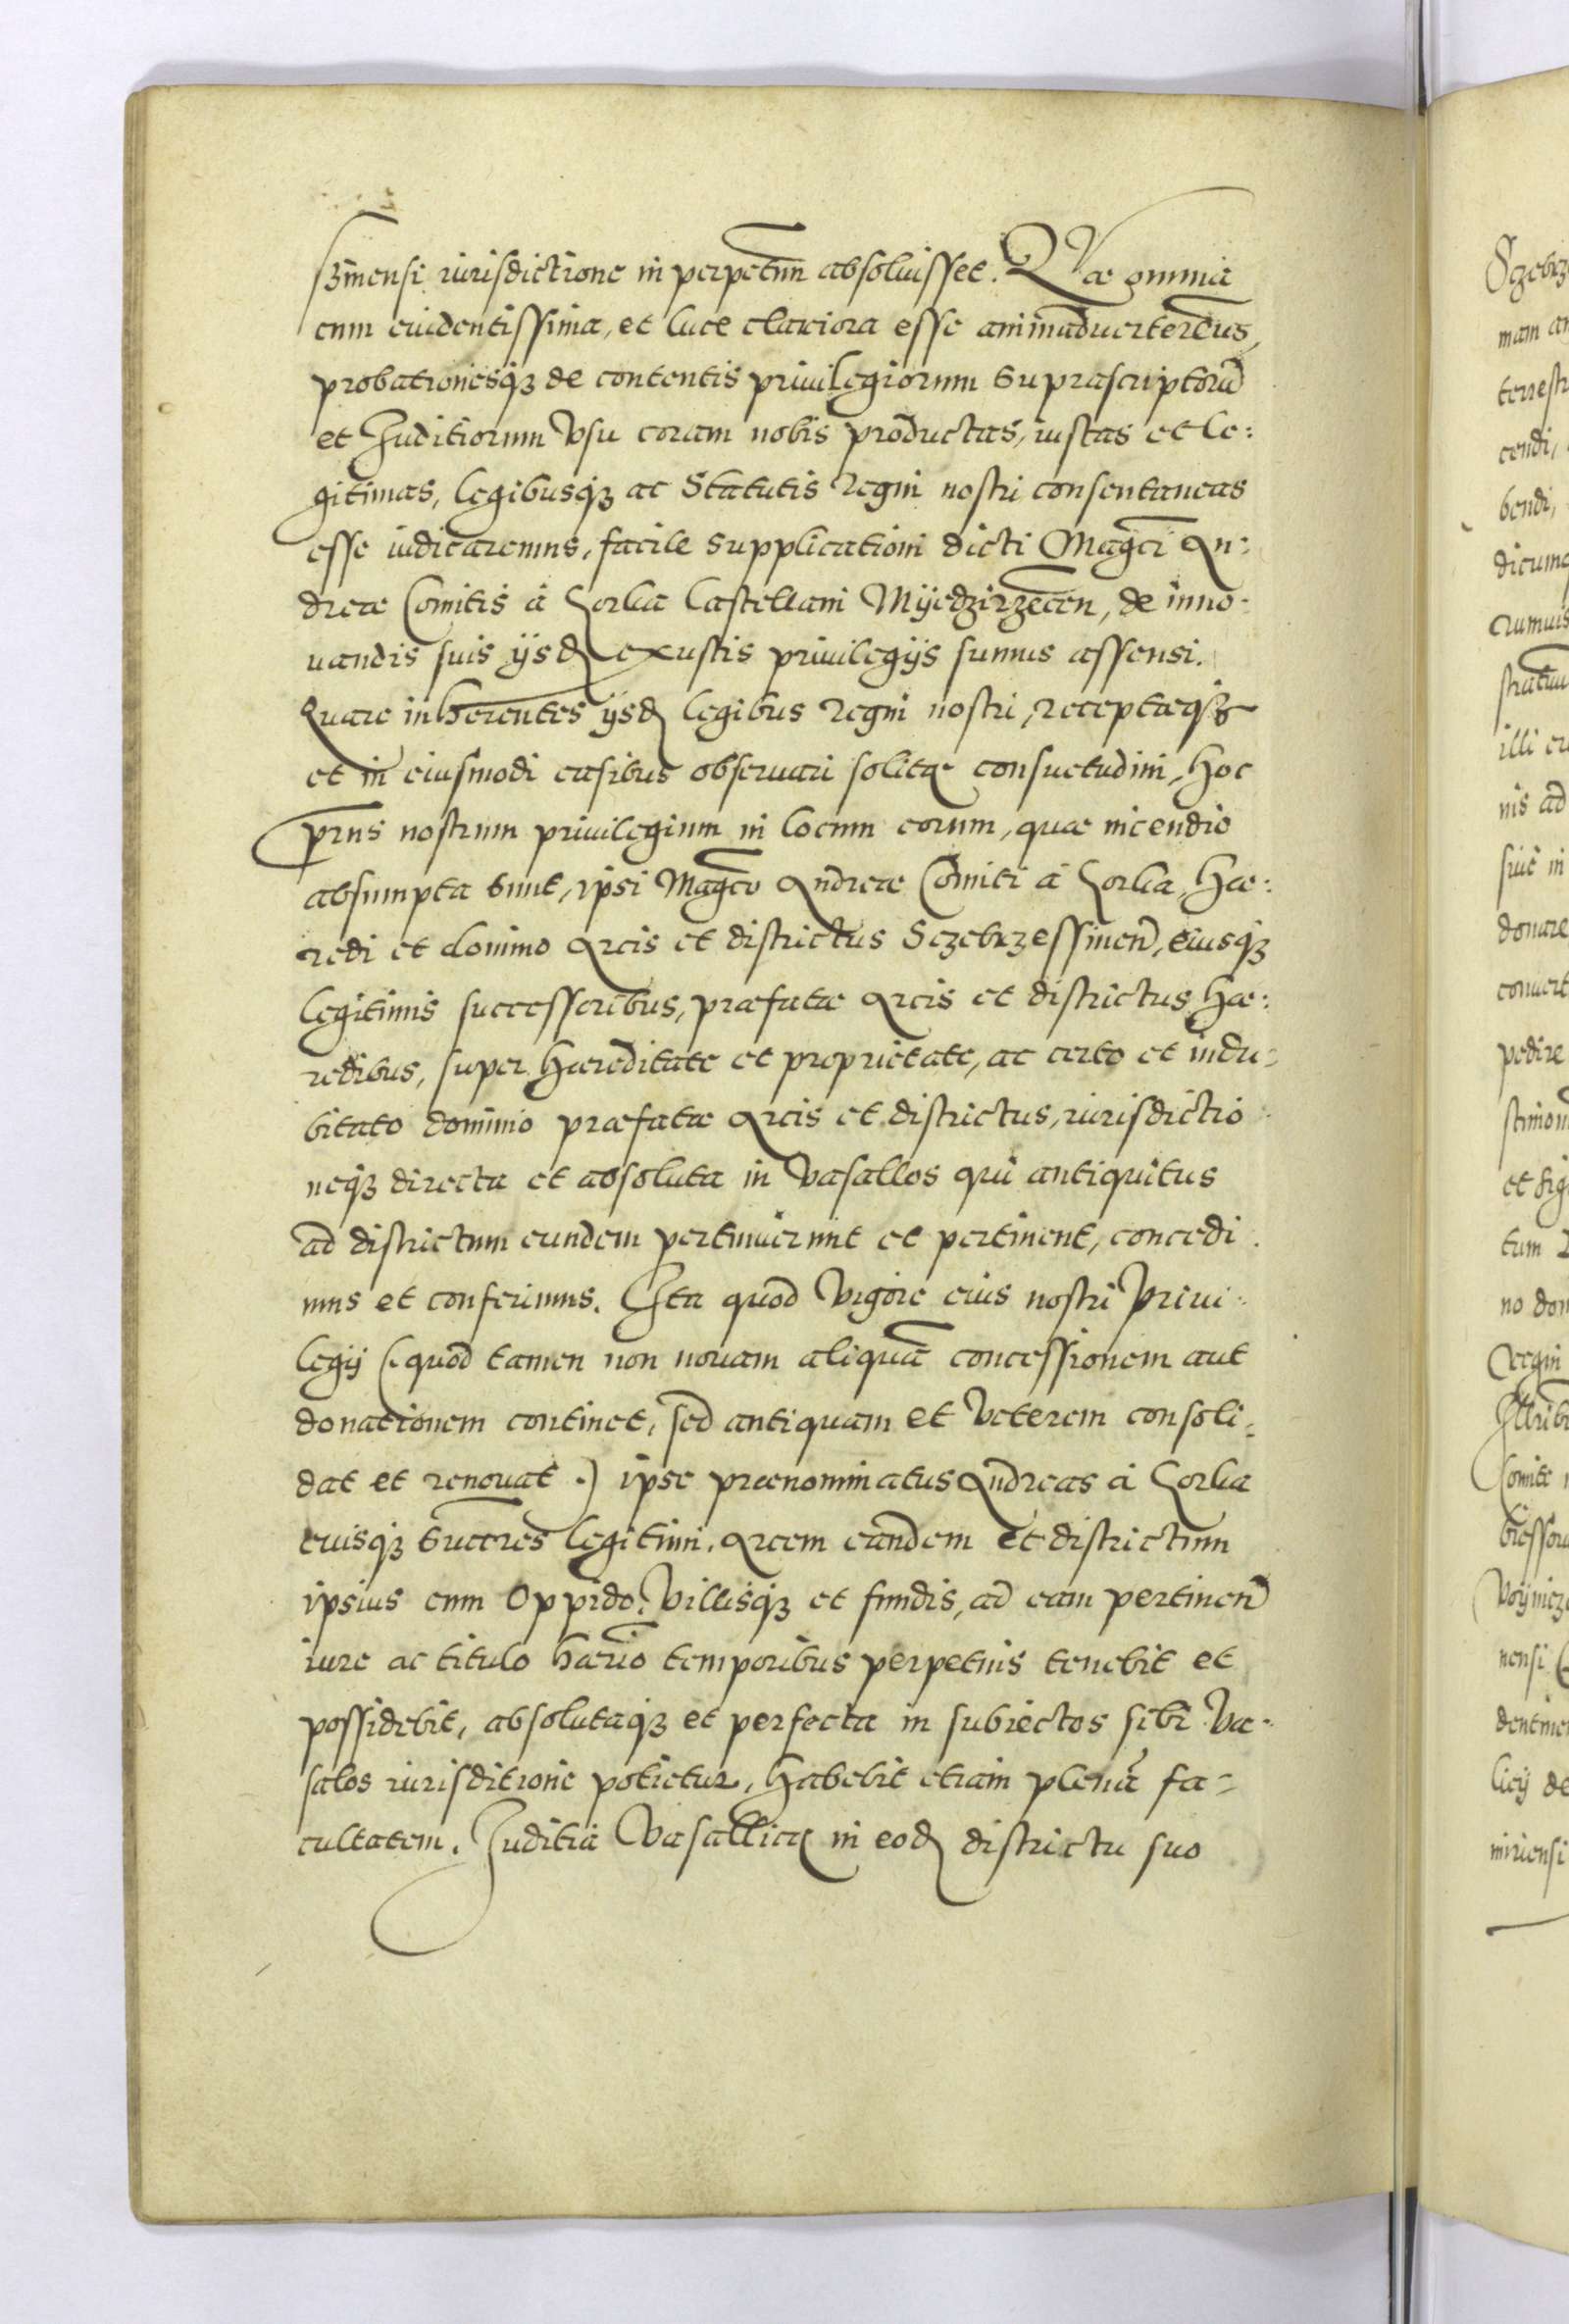 szinensi iurisdictione in perpetuum absoluisset. Quae omnia
cum euidentissima, et luce clariora esse animaduerteremus,
probationesq₃ de contentis priuilegiorum suprascriptorū
et Iuditiorum vsu coram nobis productas, iustas et le:
gitimas, legibusq₃ ac Statutis Regni nostri consentaneas
esse iudicaremus, facile supplicationi dicti Magci An:
dreae Comitis à Gorka Castellani Myedzirzecen, de inno:
uandis suis ijsd exustis priuilegijs sumus assensi.
Quare inhærentes ijsd legibus Regni nostri, receptæq₃
et in eiusmodi casibus obseruari solitæ consuetudini, hoc
prns nostrum priuilegium in locum eorum, quae incendio
absumpta sunt, ipsi Magco Andreae Comiti à Gorka, Hae:
redi et domino Arcis et districtus Sczebrzessinen, eiusq₃
legitimis successoribus, praefatae Arcis et districtus hae:
redibus, super haereditate et proprietate, ac certo et indu:
bitato dominio praefatae Arcis et districtus, iurisdictio
neq₃ directa et absoluta in vasallos qui antiquitus
ad districtum eundem pertinuerunt et pertinent, concedi
mus et conferimus. Ita quod vigore eius nostri Priui:
legij (quod tamen non nouam aliquā concessionem aut
donationem continet, sed antiquam et veterem consoli:
dat et renouat.) ipse praenominatus Andreas à Gorka
eiusq₃ succres legitimi, Arcem eandem et districtum
ipsius cum Oppido, villisq₃ et fundis, ad eam pertinen
iure ac titulo hærio temporibus perpetuis tenebit et
possidebit, absolutaq₃ et perfecta in subiectos sibi Va:
salos iurisditione potietur, habebit etiam plenā fa:
cultatem. Iuditia Vasallica in eod districtu suo
Sczebrz
mam an
terrestr
cendi,
bendi,
dicumq
illi
nis ad
siue in
donare
conuert
pedire
et sig
tum
no dom
Comite
nensi
licij de
miriensi